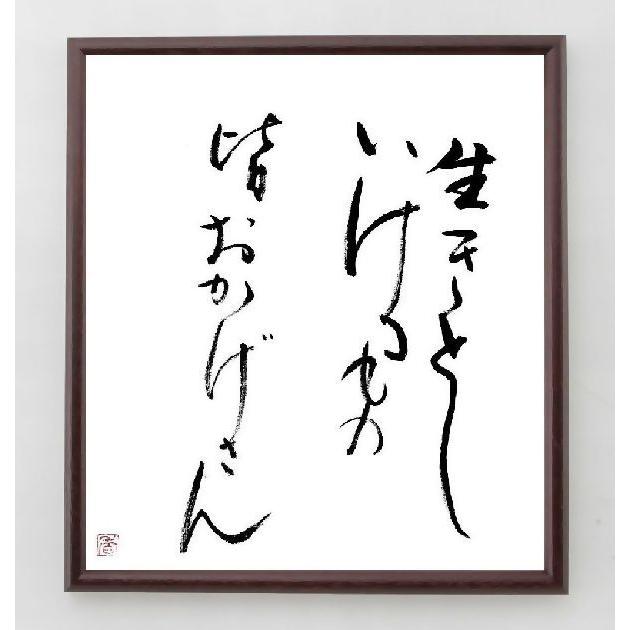 生きとし
いけるもの
皆おかげさん